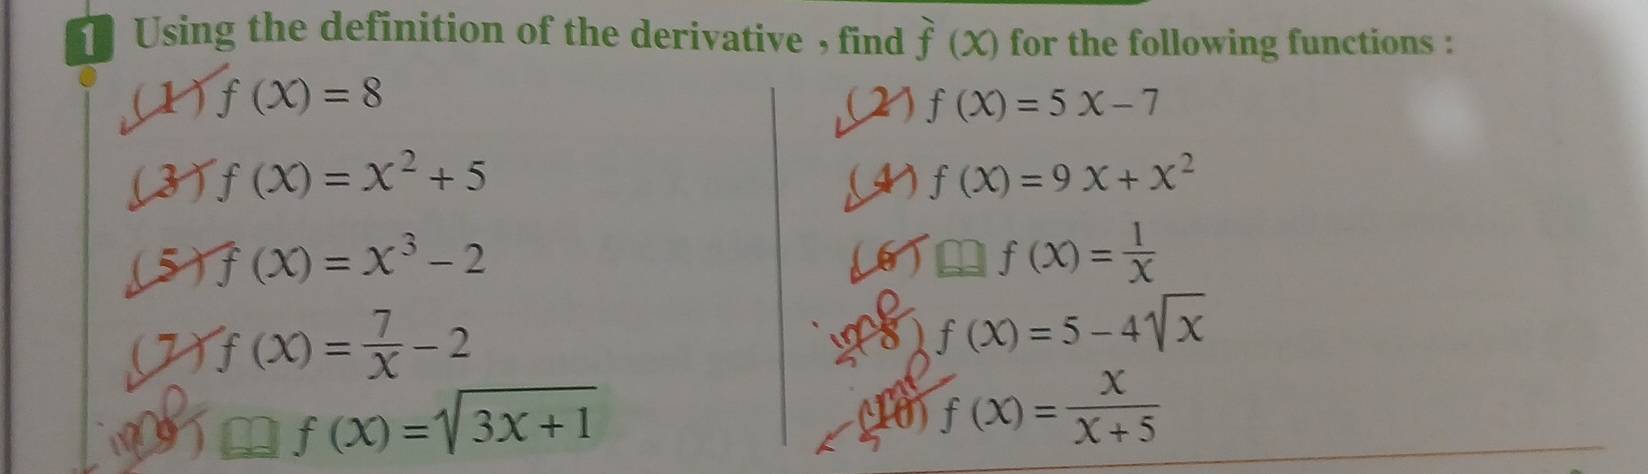 1 Using the definition of the derivative , find f̀ (X) for the following functions :
(1) f (X) = 8
(2) f (X) = 5 X – 7
(3) f (X) = X² + 5
(4) f (X) = 9 X + X²
(5) f (X) = X³ – 2
(6) f (X) = 1/X
(7) f (X) = 7/X – 2
(8) f (X) = 5 – 4√X
(9) f (X) = √(3X + 1)
(10) f (X) = X/(X + 5)